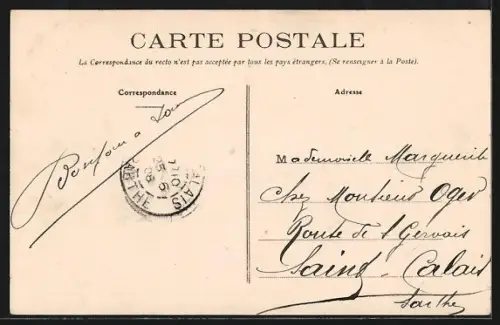 CARTE POSTALE
La Correspondance du recto n'est pas acceptée par tous les pays étrangers. (Se renseigner à la Poste).
Correspondance
Adresse
Mademoiselle Marguerite
Chez Monsieur Oger
Route de St Gervais
Saint-Calais
Sarthe
CALAIS
25 6
08
SARTHE